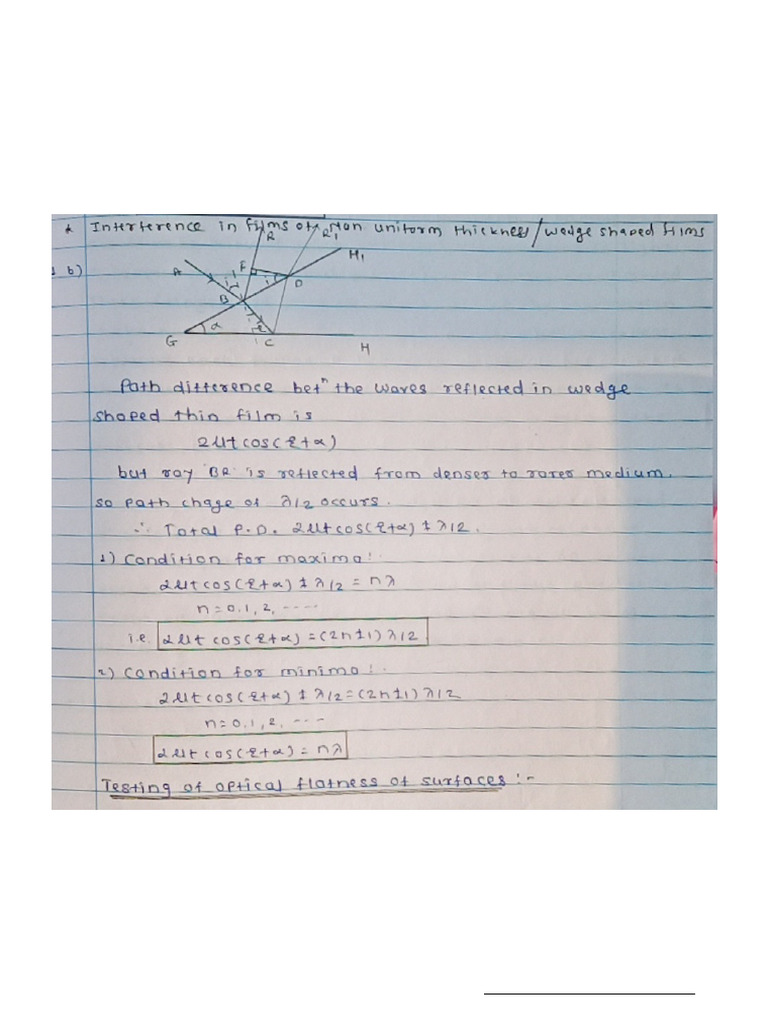 * Interference in films of Non uniform thickness/wedge shaped films
b)
R
R₁
H₁
A
F
i
i
D
B
r
α
G
C
H
Path difference betⁿ the waves reflected in wedge
shaped thin film is
2μt cos(r+α)
but ray BR is reflected from denser to rarer medium.
so path chage of λ/2 occurs.
∴ Total P.D. 2μt cos(r+α) ± λ/2.
1) Condition for maxima:-
2μt cos(r+α) ± λ/2 = nλ
n = 0, 1, 2, ----
i.e. 2μt cos(r+α) = (2n±1) λ/2
2) Condition for minima:-
2μt cos(r+α) ± λ/2 = (2n±1) λ/2
n = 0, 1, 2, ---
2μt cos(r+α) = nλ
Testing of optical flatness of surfaces:-